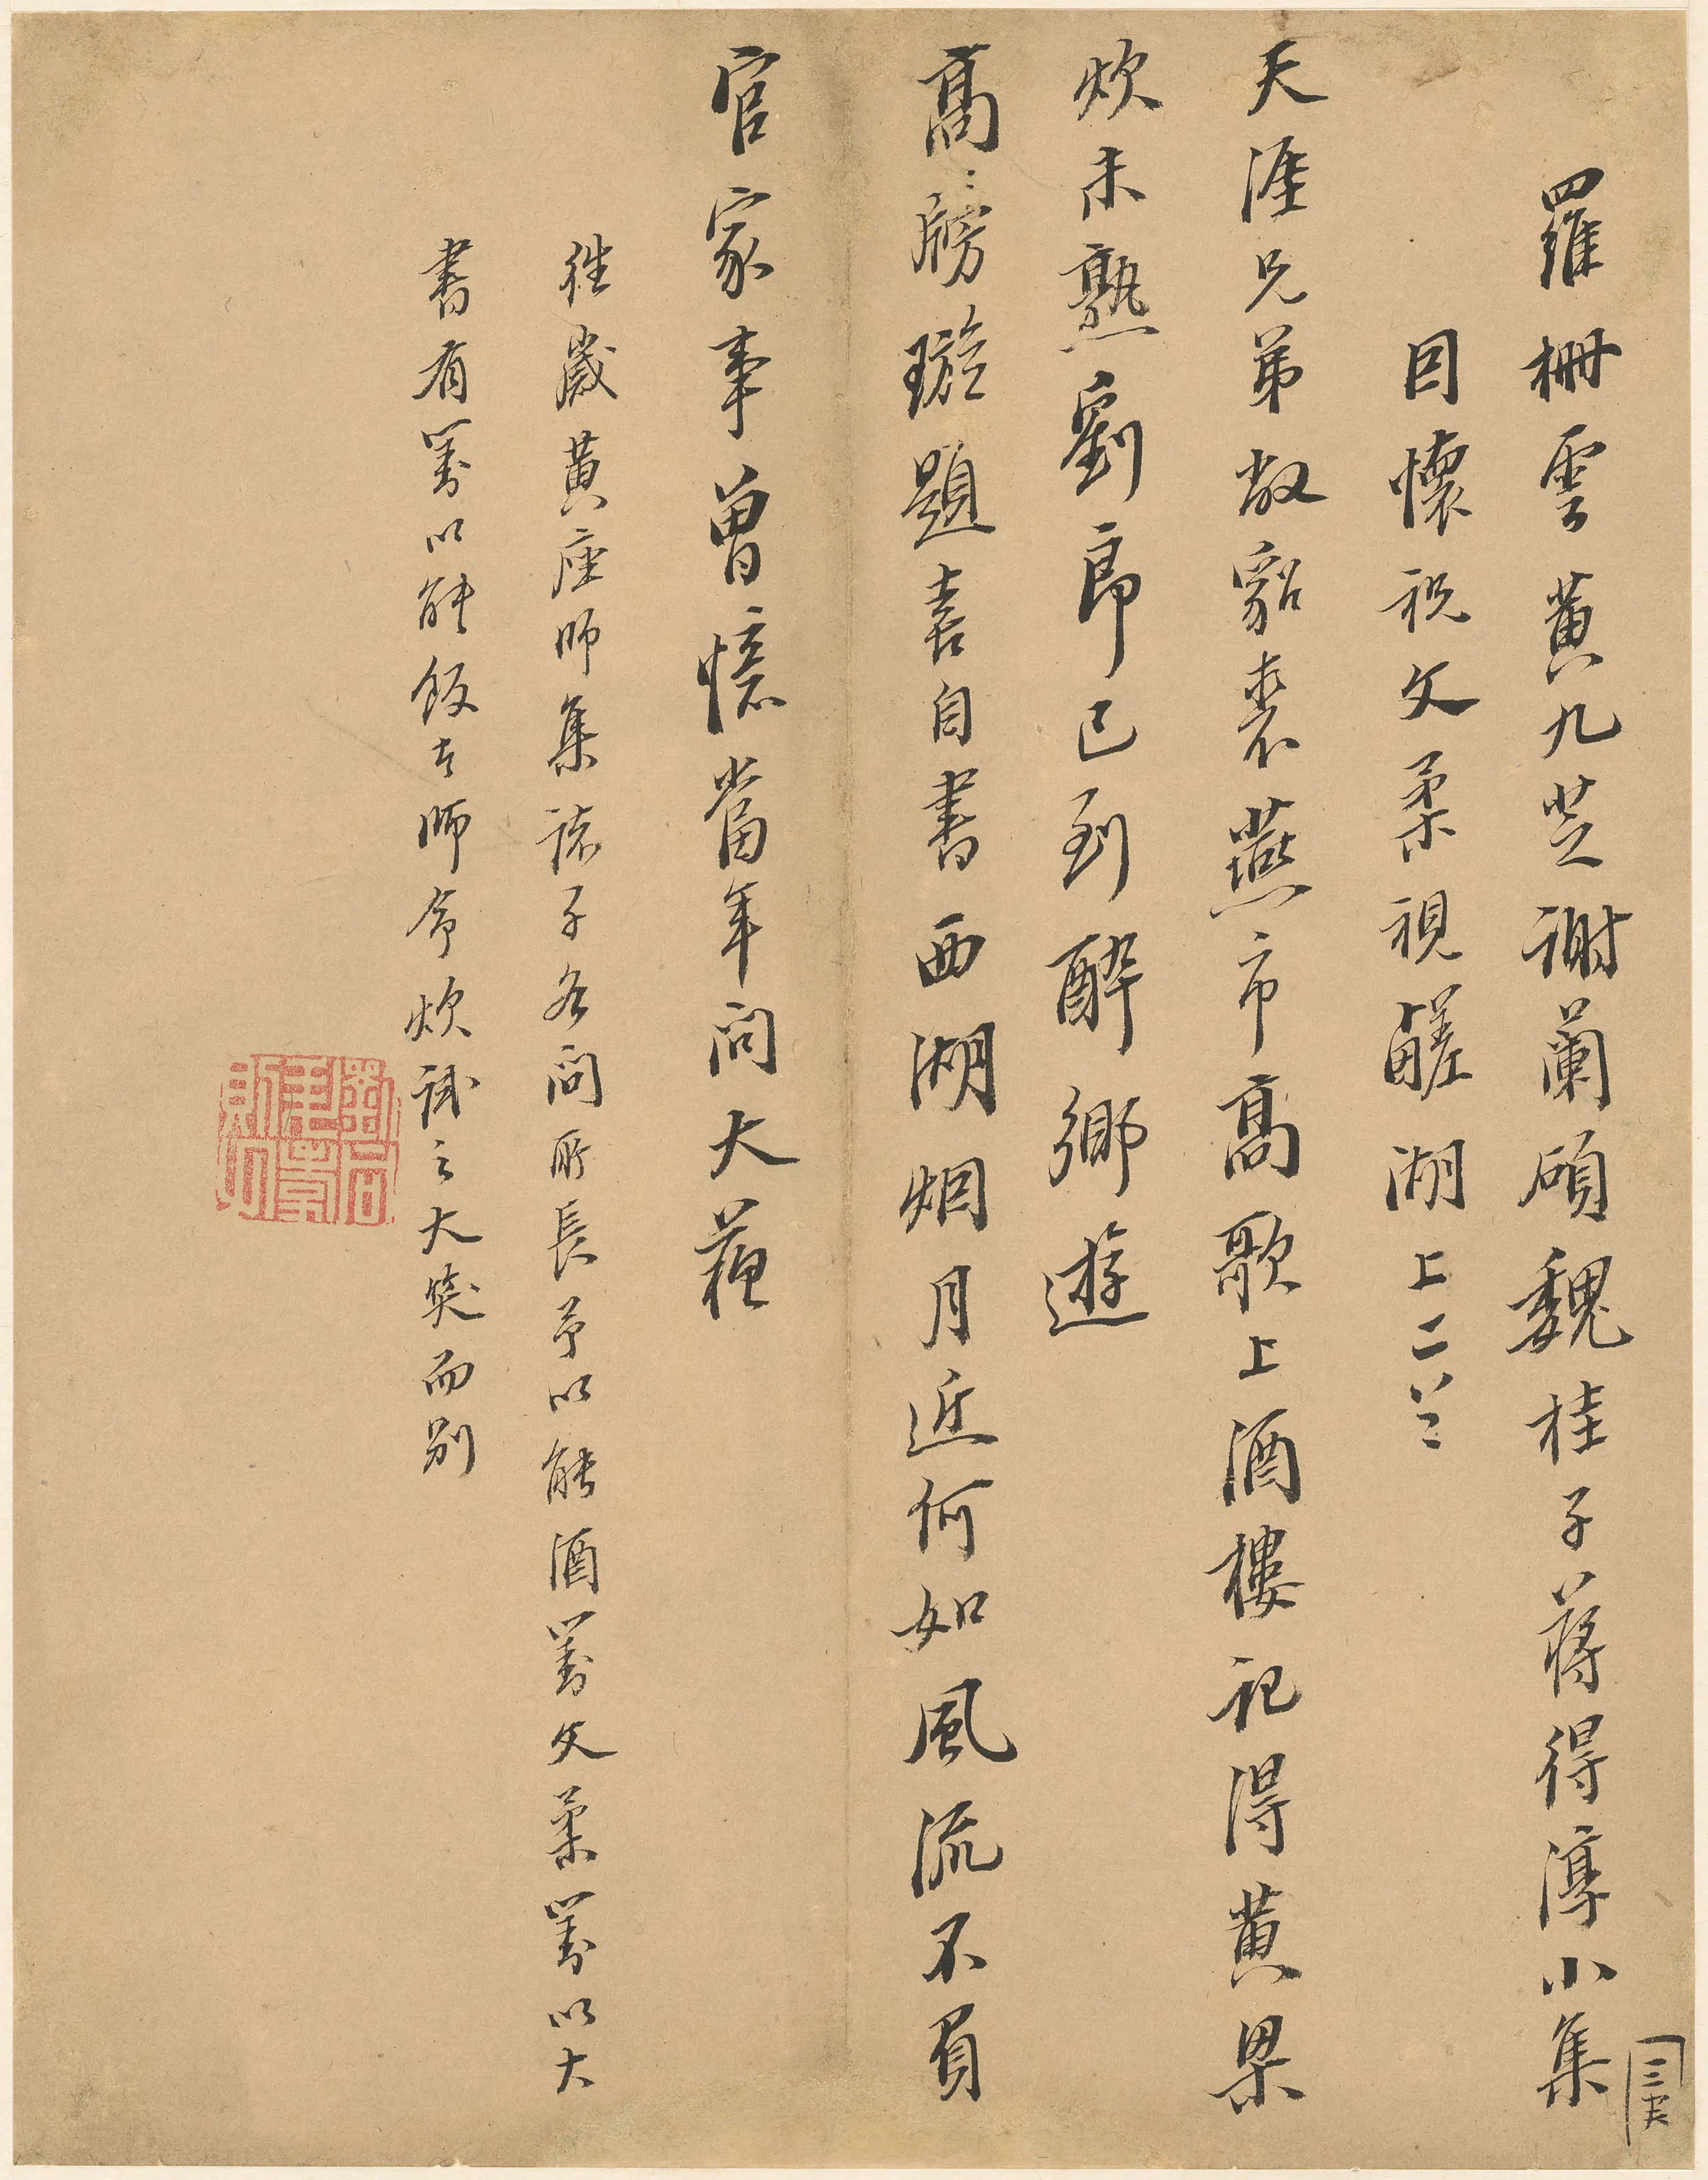 羅柵雲黃九芝謝蘭碩魏桂子蔣得淳小集
因懷祝文柔視醝湖上二首
天涯兄弟敝貂裘燕市高歌上酒樓記得黃粱
炊未熟劉郎已到醉鄉遊
高牓璇題喜自書西湖烟月近何如風流不負
官家事曾憶當年問大蘇
往歲黃座師集諸子各問所長予以能酒對文柔對以大
書有對以能飯者師令炊試之大笑而別